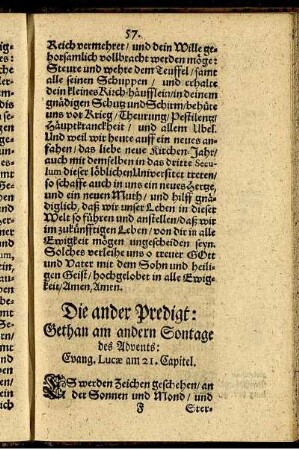 57.
Reich vermehret / und dein Wille ge-
horsamlich vollbracht werden möge:
Steure und wehre dem Teuffel / samt
alle seinen Schuppen / und erhalte
dein kleines Kirch-häufflein / in deinem
gnädigen Schutz und Schirm / behüte
uns vor Krieg / Theurung / Pestilentz /
Häuptkranckheit / und allem Ubel.
Und weil wir heute auff ein neues an-
fahen / das liebe neue Kirchen-Jahr /
auch mit demselben in das dritte Secu-
lum dieser löblichen Universitet treten /
so schaffe auch in uns ein neues Hertze,
und ein neuen Muth / und hilff gnä-
diglich, daß wir unser Leben in dieser
Welt so führen und anstellen / daß wir
im zukünfftigen Leben / von dir in alle
Ewigkeit mögen ungescheiden seyn.
Solches verleihe uns o treuer GOtt
und Vater mit dem Sohn und heili-
gen Geist / hochgelobet in alle Ewig-
keit / Amen, Amen.
Die ander Predigt:
Gethan am andern Sontage
des Advents:
Evang. Lucæ am 21. Capitel.
ES werden Zeichen geschehen / an
der Sonnen und Mond / und
F Ster-